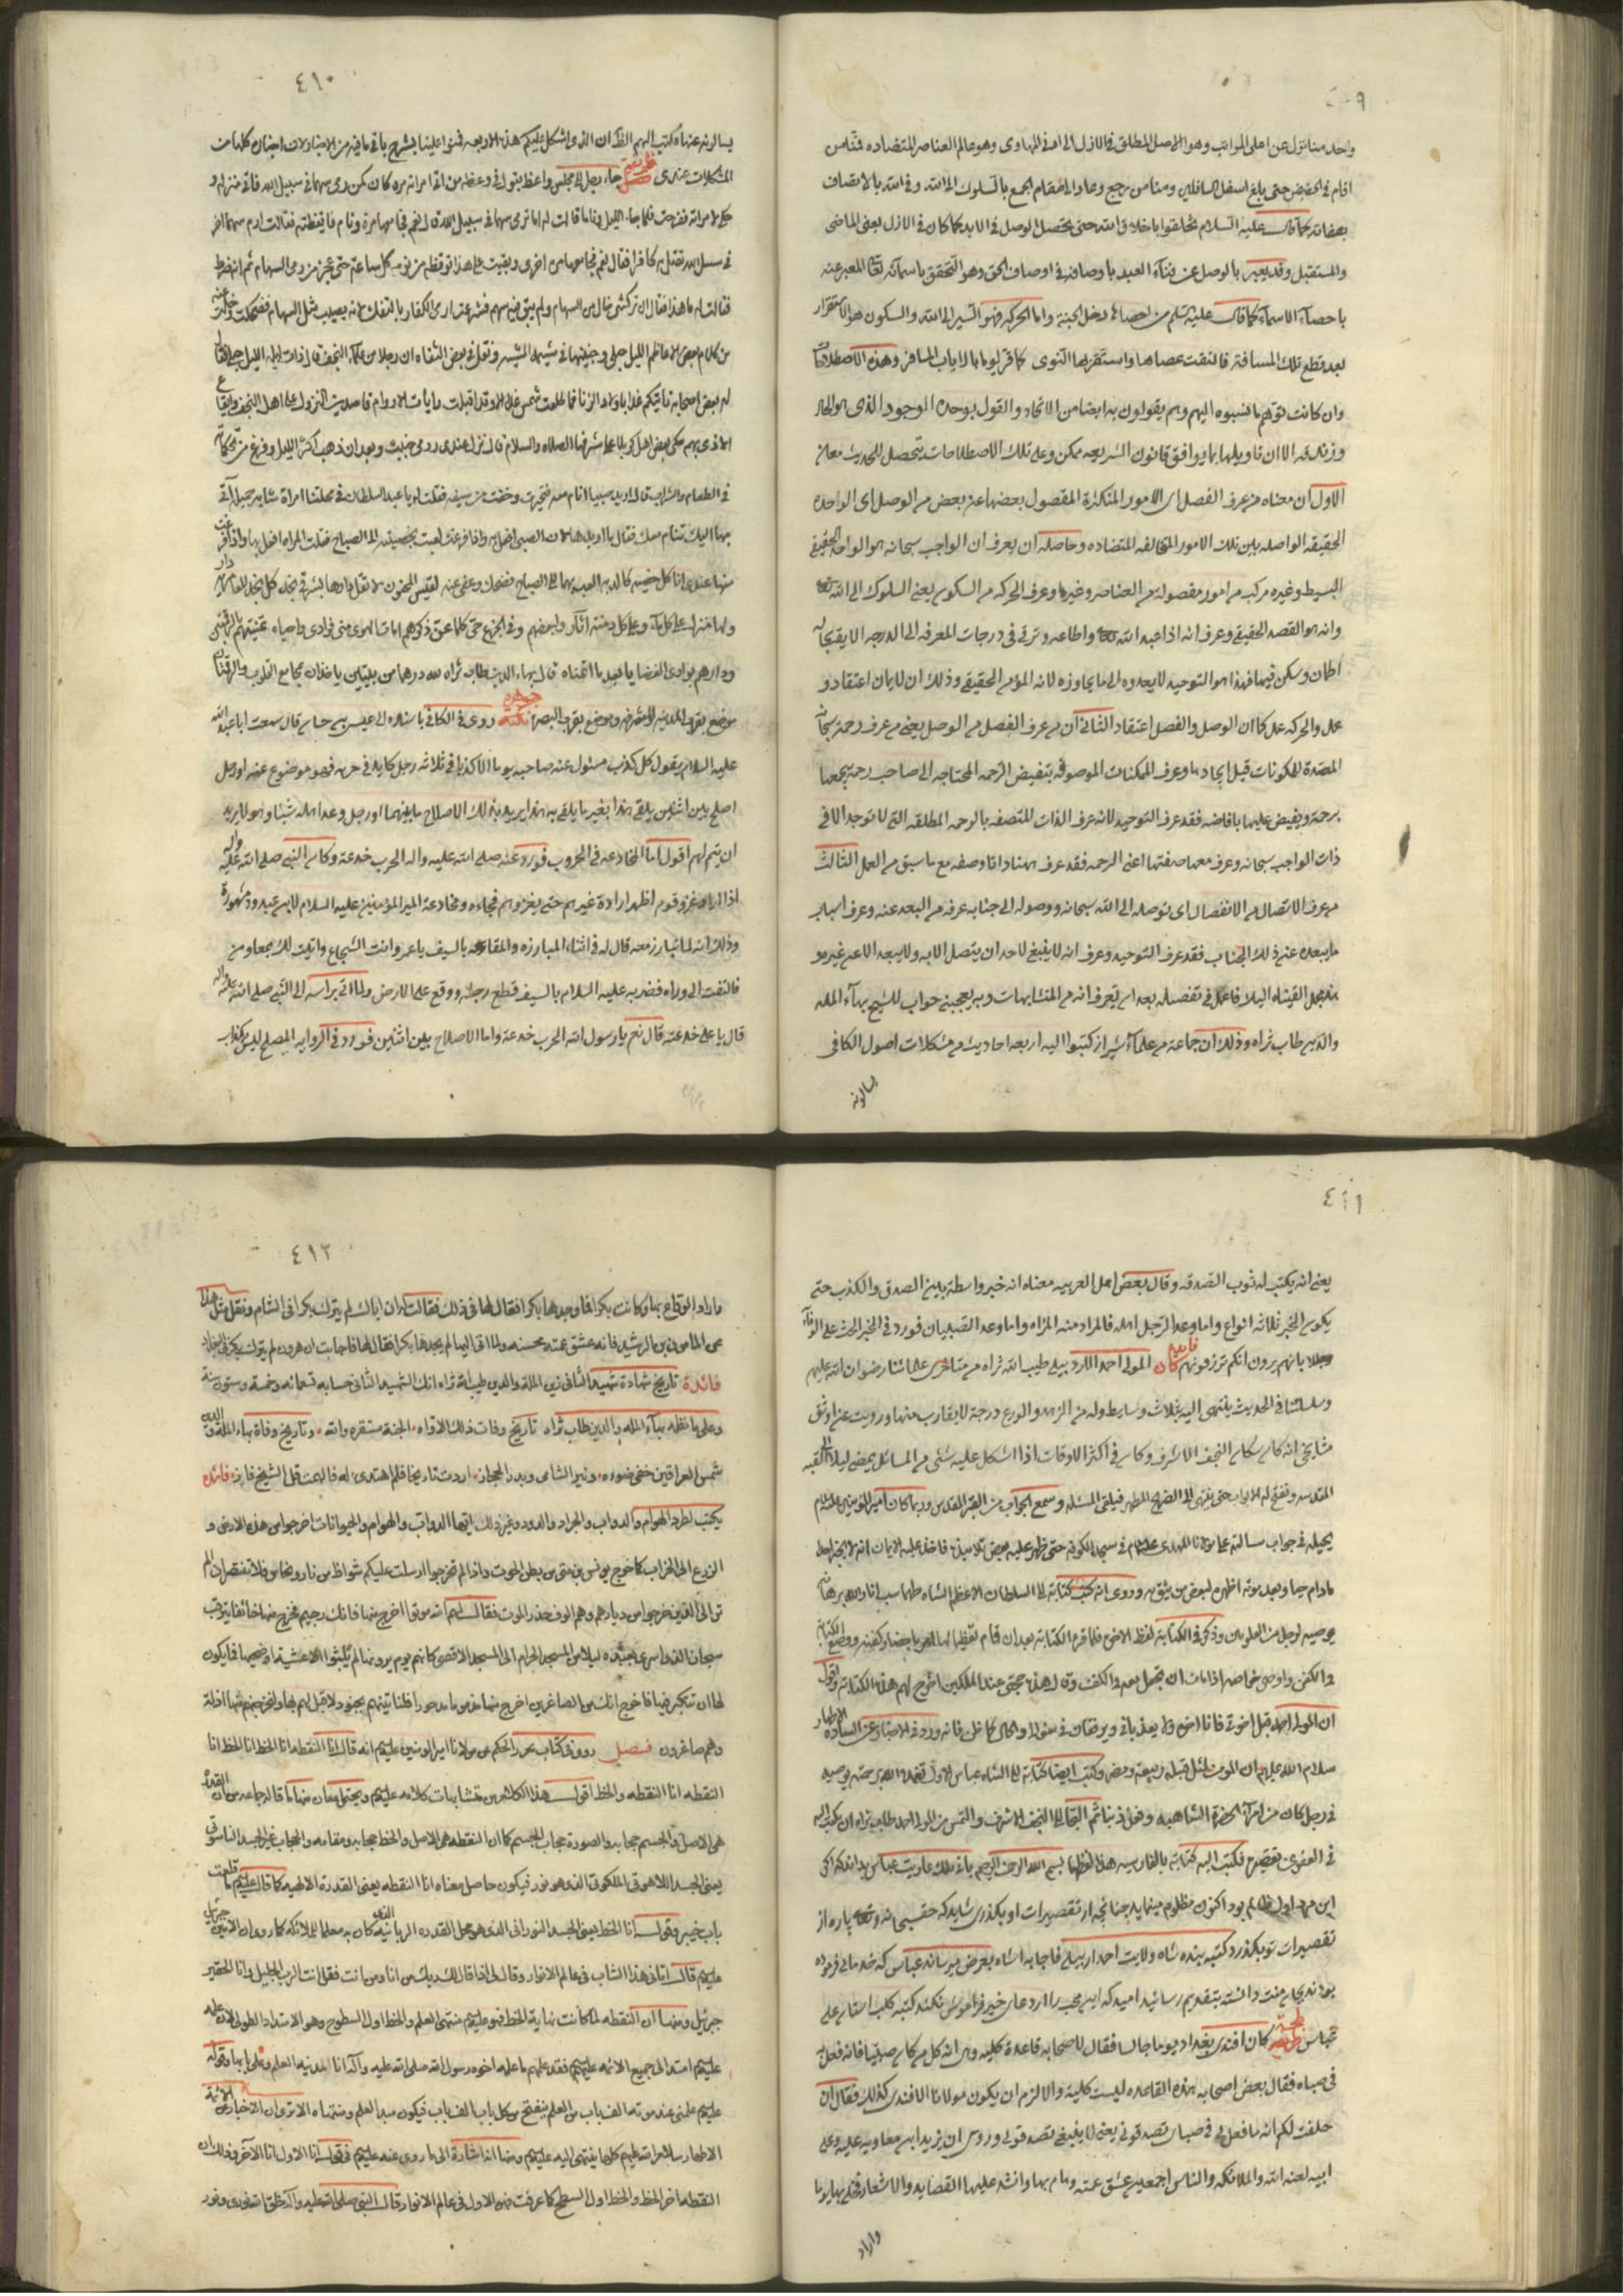 ٤٠٩
واحد منا تنزل عن اعلى المراتب وهو الاصل المطلق في الازل الى ادنى المهاوى وهو عالم العناصر المتضاده فمنا من
اقام في الحضيض حتى بلغ اسفل السافلين ومنا من رجع وعاد الى مقام الجمع بالسلوك الى الله وفي الله بالاتصاف
بصفاته كما قال عليه السلام تخلقوا باخلاق الله حتى يحصل الوصل في الابد كما كان في الازل يعنى الماضى
والمستقبل وقد يعبر بالوصل عن فناء العبد باوصافه في اوصاف الحق وهو التحقق باسمائه تعالى المعبر عنه
باحصاء الاسماء كما قال عليه السلم من احصاها دخل الجنة واما الحركه فهو السير الى الله والسكون هو الاستقرار
بعد قطع تلك المسافة فالتقت عصاها واستقر بها النوى كما قر يوما بالاياب المسافر وهذه الاصطلاحات
وان كانت توهم ما نسبوه اليهم وهم يقولون به ايضا من الاتحاد والقول بوحدة الموجود الذى هو الحاد
وزندقه الا ان تاويلها بما يوافق قانون الشريعه ممكن وعلى تلك الاصطلاحات يتحصل للحديث معان
الاول ان معناه من عرف الفصل اى الامور المتكثرة المفصول بعضها عن بعض من الوصل اى الواحده
الحقيقه الواصله بين تلك الامور المتخالفه المتضاده وحاصله ان يعرف ان الواجب سبحانه هو الواحد الحقيقى
البسيط وغيره مركب من امور مفصوله من العناصر وغيرها وعرف الحركه من السكون يعنى السلوك الى الله تعالى
وانه هو القصد الحقيقى وعرف انه اذا عبد الله تعالى واطاعه وترقى في درجات المعرفه الى الدرجه
اطمان وسكن فيها فهذا هو التوحيد لا يعدوه الى ما يجاوزه لانه المؤمن الحقيقى وذلك ان الايمان اعتقاد و
عمل والحركه عمل كما ان الوصل والفصل اعتقاد الثانى ان من عرف الفصل من الوصل يعنى من عرف رحمة سبحانه
المعدة للمكونات قبل ايجادها وعرف الممكنات الموصوفه بتفيض الرحمه المحتاجه الى صاحب رحمة يجمعها
برحمته ويفيض عليها بافاضه فقد عرف التوحيد لانه عرف الذات المتصفه بالرحمه المطلقه التى لا توجد الا في
ذات الواجب سبحانه وعرف معها صفتها اعنى الرحمه فقد عرف ههنا ذاتا وصفه مع ما سبق من العمل الثالث
من عرف الاتصال من الانفصال اى توصله الى الله سبحانه ووصوله الى جنابه عرفه من البعد عنه وعرف اسباب
ما يبعده عن ذلك الجناب فقد عرف التوحيد وعرف انه لا ينبغى لاحد ان يتصل الا به ولا يبعد الا عن غيره
هذا مجمل القيناه اليك فاعمل في تفصيله بعد ان تعرف انه من المتشابهات وبه يعجبنى جواب للشيخ بهاء المله
والدين طاب ثراه وذلك ان جماعة من علماء شيراز كتبوا اليه اربعه احاديث من مشكلات اصول الكافى
يسالونه
٤١٠
يسالونه عنها وكتب اليهم الظ ان الذى اشكل عليكم هذه الاربعه فمنوا علينا بشرح باقى ما فيه من الاخبار لان اخباره كلها من
المشكلات عندى جاء رجل الى مجلس واعظ يقول في وعظه من اتى امراته مره كان كمن رمى سهما في سبيل الله فاتى منزله و
حكى لامراته ففرحت فلما جاء الليل وناما قالت له اما ترمى سهما في سبيل الله قال نعم فجامعها مرة ونام فايقظته فقالت ارم سهما اخر
في سبيل الله تقتل به كافرا فقال نعم فجامعها مرة اخرى وبقيت على هذا توقظه من نومه كل ساعة حتى عجز من رمى السهام ثم انه ضرط
فقالت له ما هذا فقال ان تركشى خال من السهام ولم يبق فيه سهم فشرعت ارمى الكفار بالتفنك لانه يصيب مثل السهام فضحكت وتركته
من كلام بعض الاعاظم الليل حبلى
له بعض اصحابه
الاذى بهم حكى بعض اهل كربلا على مشرفها الصلاه والسلام قال نزل عندى رومى خبيث وبعد ان ذهب اكثر الليل وفرغ من
في الطعام والشراب قال اريد صبيا انام معه فتحيرت وخفت من سيفه فقلت له يا عبد السلطان في محلتنا امراة شابه جميله اتى
بها اليك تنام معك فقال
منها عندى
ولها منزل على كل ماء وعلى كل دمنة اثار
ودارهم بوادى الغضا يا بعد ما اتمناه قال بهاء الدين طاب ثراه
موضع بقرب المدينه المشرفه وموضع بقرب البصره نكته روى في الكافى باسناده الى عيسى بن حسان قال سمعت ابا عبد الله
عليه السلام يقول كل كذب مسئول عنه صاحبه يوما الا كذبا في ثلاثه رجل كايد في حربه فهو موضوع عنه او رجل
اصلح بين اثنين يلقى هذا بغير ما يلقى به هذا يريد بذلك الاصلاح ما بينهما او رجل وعد اهله شيئا وهو لا يريد
ان يتم لهم اقول اما المخادعه في الحروب فورد عنه صلى الله عليه واله الحرب خدعة وكان النبى صلى الله عليه واله
اذا اراد غزو قوم اظهر ارادة غيرهم حتى يغزوهم فجاءه ومخادعة امير المؤمنين عليه السلام لابن عبد ود مشهورة
وذلك انه لما تبارز معه قال له في اثناء المبارزه والمقارعه بالسيف يا عمر وانت الشجاع واتيت لك بمعاون
فالتفت الى وراه فضربه عليه السلام بالسيف فقطع رجله ووقع على الارض ولما اتى براسه الى النبى صلى الله عليه واله
قال يا على خدعته قال نعم يا رسول الله الحرب خدعة واما الاصلاح بين اثنين فورد في الرواية المصلح ليس بكذاب
٤١١
يعنى انه يكتب له ثوب الصدقه وقال بعض اهل العربيه معناه انه خبر واسطة بين الصدق والكذب حتى
يكون الخبر ثلاثه انواع واما وعد الرجل اهله فالمراد منه المراه واما وعد الصبيان فورد في الخبر الحث على الوفاء
معللا بانهم يرون انكم ترزقونهم فايده كان المولى احمد الاردبيلى طيب الله ثراه من متاخرى علمائنا رضوان الله عليهم
وسلسلتنا في الحديث ينتهى اليه بثلاث وسايط وله من الزهد والورع درجة لا يقارب منها ورويت عن اوثق
مشايخى انه كان ساكن النجف الاشرف وكان في اكثر الاوقات اذا اشكل عليه شئى من المسائل يمضى ليلا الى القبه
المقدسه وتفتح له الابواب حتى ينتهى الى الضريح المطهر فيلقى المسئله ويسمع الجواب من القبر المقدس وربما كان امير المؤمنين عليه السلام
يحيله في جواب مسالته على مولانا المهدى عليه السلام في مسجد الكوفه حتى ظهر عليه بعض تلاميذه فاخذ عليه الايمان انه لا يخبر احدا
مادام حيا وبعد موته اظهره لبعض من يثق به وروى انه كتب كتابة الى السلطان الاعظم الشاه طهماسب انار الله برهانه
يوصيه لرجل من العلويين وذكر في الكتابة لفظ الاخ فلما قرء الكتابه بعد ان قام تعظيما لها امر باحضار كفنه ووضع الكتابة
في الكفن واوصى خواصه اذا مات ان تجعل معه في الكفن وقال هذه حجتى عند الملكين اخرج لهم هذه الكتابة واقول
ان المولى احمد قبل اخوتى فانا اخوه ولا يعذبانى ويرفقان في سئوالى والحال كما ظن فانه ورد في الاخبار عن الساده الاطهار
سلام الله عليهم ان الموت
في رجل كان من امراء الحضرة الشاهيه وفعل ذنبا ثم التجا الى النجف الاشرف والتمس من المولى احمد طاب ثراه ان يكتب اليه
في العفو عن تقصيره فكتب اليه كتابة بالفارسيه هذا لفظها بسم الله الرحمن الرحيم بانى ملك عاريت عباس بداند كه اكر
اين مرد اول ظالم بود اكنون مظلوم مينمايد چنانچه از تقصيرات او بگذرى شايد كه حق سبحانه وتعالى پاره از
تقصيرات تو بگذرد كتبه بنده شاه ولايت احمد اردبيلى فاجابه الشاه بعرض ميرساند عباس كه خدماتى فرموده
بودند بجان منت دانسته بتقديم رسانيد اميد كه اين محب را از دعاى خير فراموش نكند كتبه كلب استان على
عباس لطيفه كان افندى بغداد يوما جالسا فقال لاصحابه قاعدة كليه وهى ان كل من كان صبيا فانه فعل به
في صباه فقال بعض اصحابه هذه القاعده ليست كلية والا لزم ان يكون مولانا الافندى كذلك فقال ان
حلفت لكم انه ما فعل بى في صباى تصدقونى يعنى لا ينبغى تصدقونى وروى ان يزيد ابن معاويه عليه وعلى
ابيه لعنه الله والملائكه والناس اجمعين عشق عمته وهام بها وانشد عليها القصايد والاشعار فخلى بها يوما
واراد
٤١٢
واراد الوقاع بها وكانت بكرا فما وجدها بكرا فقال لها في ذلك فقالت له ان اباك لم يترك بكرا في الشام ونقل مثل هذا
عن المامون بن الرشيد فانه عشق عمته محسنه ولما اتى اليها لم يجدها بكرا فقال لها فاجابت ان هرون لم يترك بكرا في بغداد
فائدة تاريخ شهادة شهيد الثانى زين الملة والدين طيب الله ثراه انك الشهيد الثانى حسابه تسعمائه وخمسة وستون سنة
وعلى ما نظمه بهاء المله والدين طاب ثراه تاريخ وفات ذلك الاواه الجنة مستقره والله وتاريخ وفاة بهاء الملة والدين
شمس العراقين خفى ضوءه ونير الشامى وبدر الحجاز اردت تاريخا فلم اهتدى له فالهمت قل الشيخ فاز فائده
يكتب لطرد الهوام والدواب والجراد والدود وغير ذلك ايتها الدواب والهوام والحيوانات اخرجوا من هذه الارض و
الزرع الى الخراب كما خرج يونس بن متى من بطن الحوت واذا لم تخرجوا ارسلت عليكم شواظ من نار ونحاس فلا تنتصران الم
تر الى الذين خرجوا من ديارهم وهم الوف حذر الموت فقال لهم الله موتوا اخرج منها فانك رجيم فخرج منها خائفا يترقب
سبحان الذى اسرى بعبده ليلا من المسجد الحرام الى المسجد الاقصى كانهم يوم يرونها لم يلبثوا الا عشية او ضحيها فما يكون
لها ان تتكبر فيها فاخرج انك من الصاغرين اخرج منها مذموما مدحورا فلناتينهم بجنود لا قبل لهم بها ولنخرجنهم منها اذلة
وهم صاغرون فصل روى في كتاب بحر الحكم عن مولانا امير المؤمنين عليه السلم انه قال انا النقطه انا الخط انا الخط انا
النقطه انا النقطه والخط اقول هذا الكلام من متشابهات كلامه عليه السلم ويحتمل معان منها ما قاله جماعه من ان القدرة
هى الاصل والجسم حجابه والصورة حجاب الجسم كما ان النقطه هى الاصل والخط حجابه ومقامه والحجاب غير الجسد الناسوتى
يعنى الجسد اللاهوتى الملكوتى الذى هو نور فيكون حاصل معناه انا النقطه يعنى القدرة الالهيه كما قال عليه السلم ما قلعت
باب خيبر وقوله انا الخط يعنى الجسد النورانى الذى هو محل القدره الربانيه كان به معلما للملائكه كما روى ان الامين جبرئيل
عليه السلم قال اتانى هذا الشاب في عالم الانوار وقال لى اذا قال لك ربك من انا ومن انت فقل انت الرب الجليل وانا الحقير
جبرئيل ومنها ان النقطه لما كانت نهاية الخط فهو عليه السلم منتهى العلم والخط اول السطوح وهو الامتداد الطولى لان علمه
عليه السلم امتد الى جميع الائمه عليهم السلم فقد علمهم ما علمه اخوه رسول الله صلى الله عليه واله انا المدينه العلم وعلى بابها وقوله
عليه السلم علمنى عند موته الف باب من العلم ينفتح من كل باب الف باب فيكون مبدا العلم ومنتهاه الا ترى ان الاخبار من الائمة
الاطهار سلام الله عليهم كلها ينتهى اليه عليه السلم ومنها انه اشارة الى ما روى عنه عليه السلم في قوله انا الاول انا الآخر وذلك ان
النقطه اخر الخط والخط اول السطح كما عرفت فهو الاول في عالم الانوار قال النبى صلى الله عليه وآله خلق الله نورى ونور